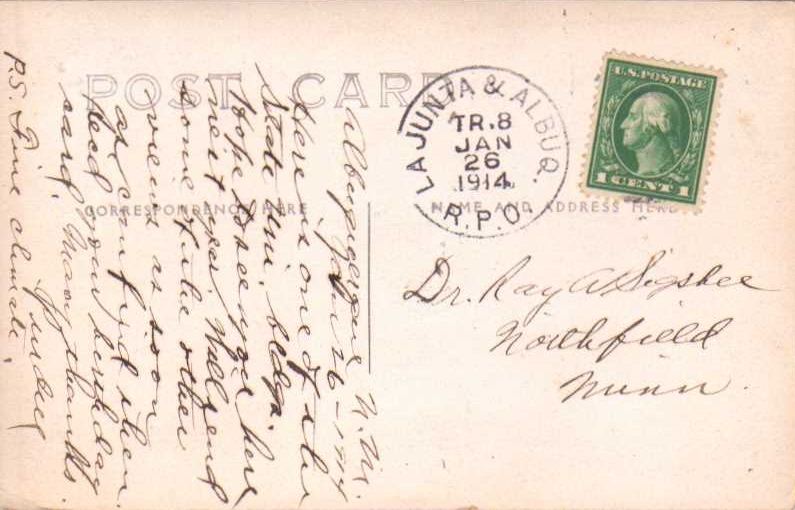 POST CARD
CORRESPONDENCE HERE
NAME AND ADDRESS HERE
LA JUNTA & ALBUQ.
TR.8
JAN
26
1914
R.P.O.
U.S. POSTAGE
1 CENT 1
Albuquerque N. Mx.
Jan. 26 - 1914
Here is one of the
State Uni. bldgs.
Hope to see you here
next year. Will send
some of the other
views as soon
as can find them.
Recd your birthday
card. Many thanks.
P.S. Fine climate.
Dr. Ray A Sigsbee
Northfield
Minn.